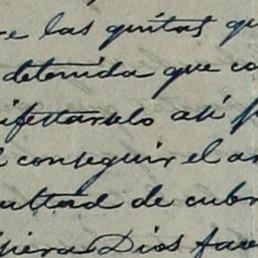 re las quitas qu
detenida que co
ifestarselo asi p
conseguir el ar
ultad de cubr
piera Dios fav